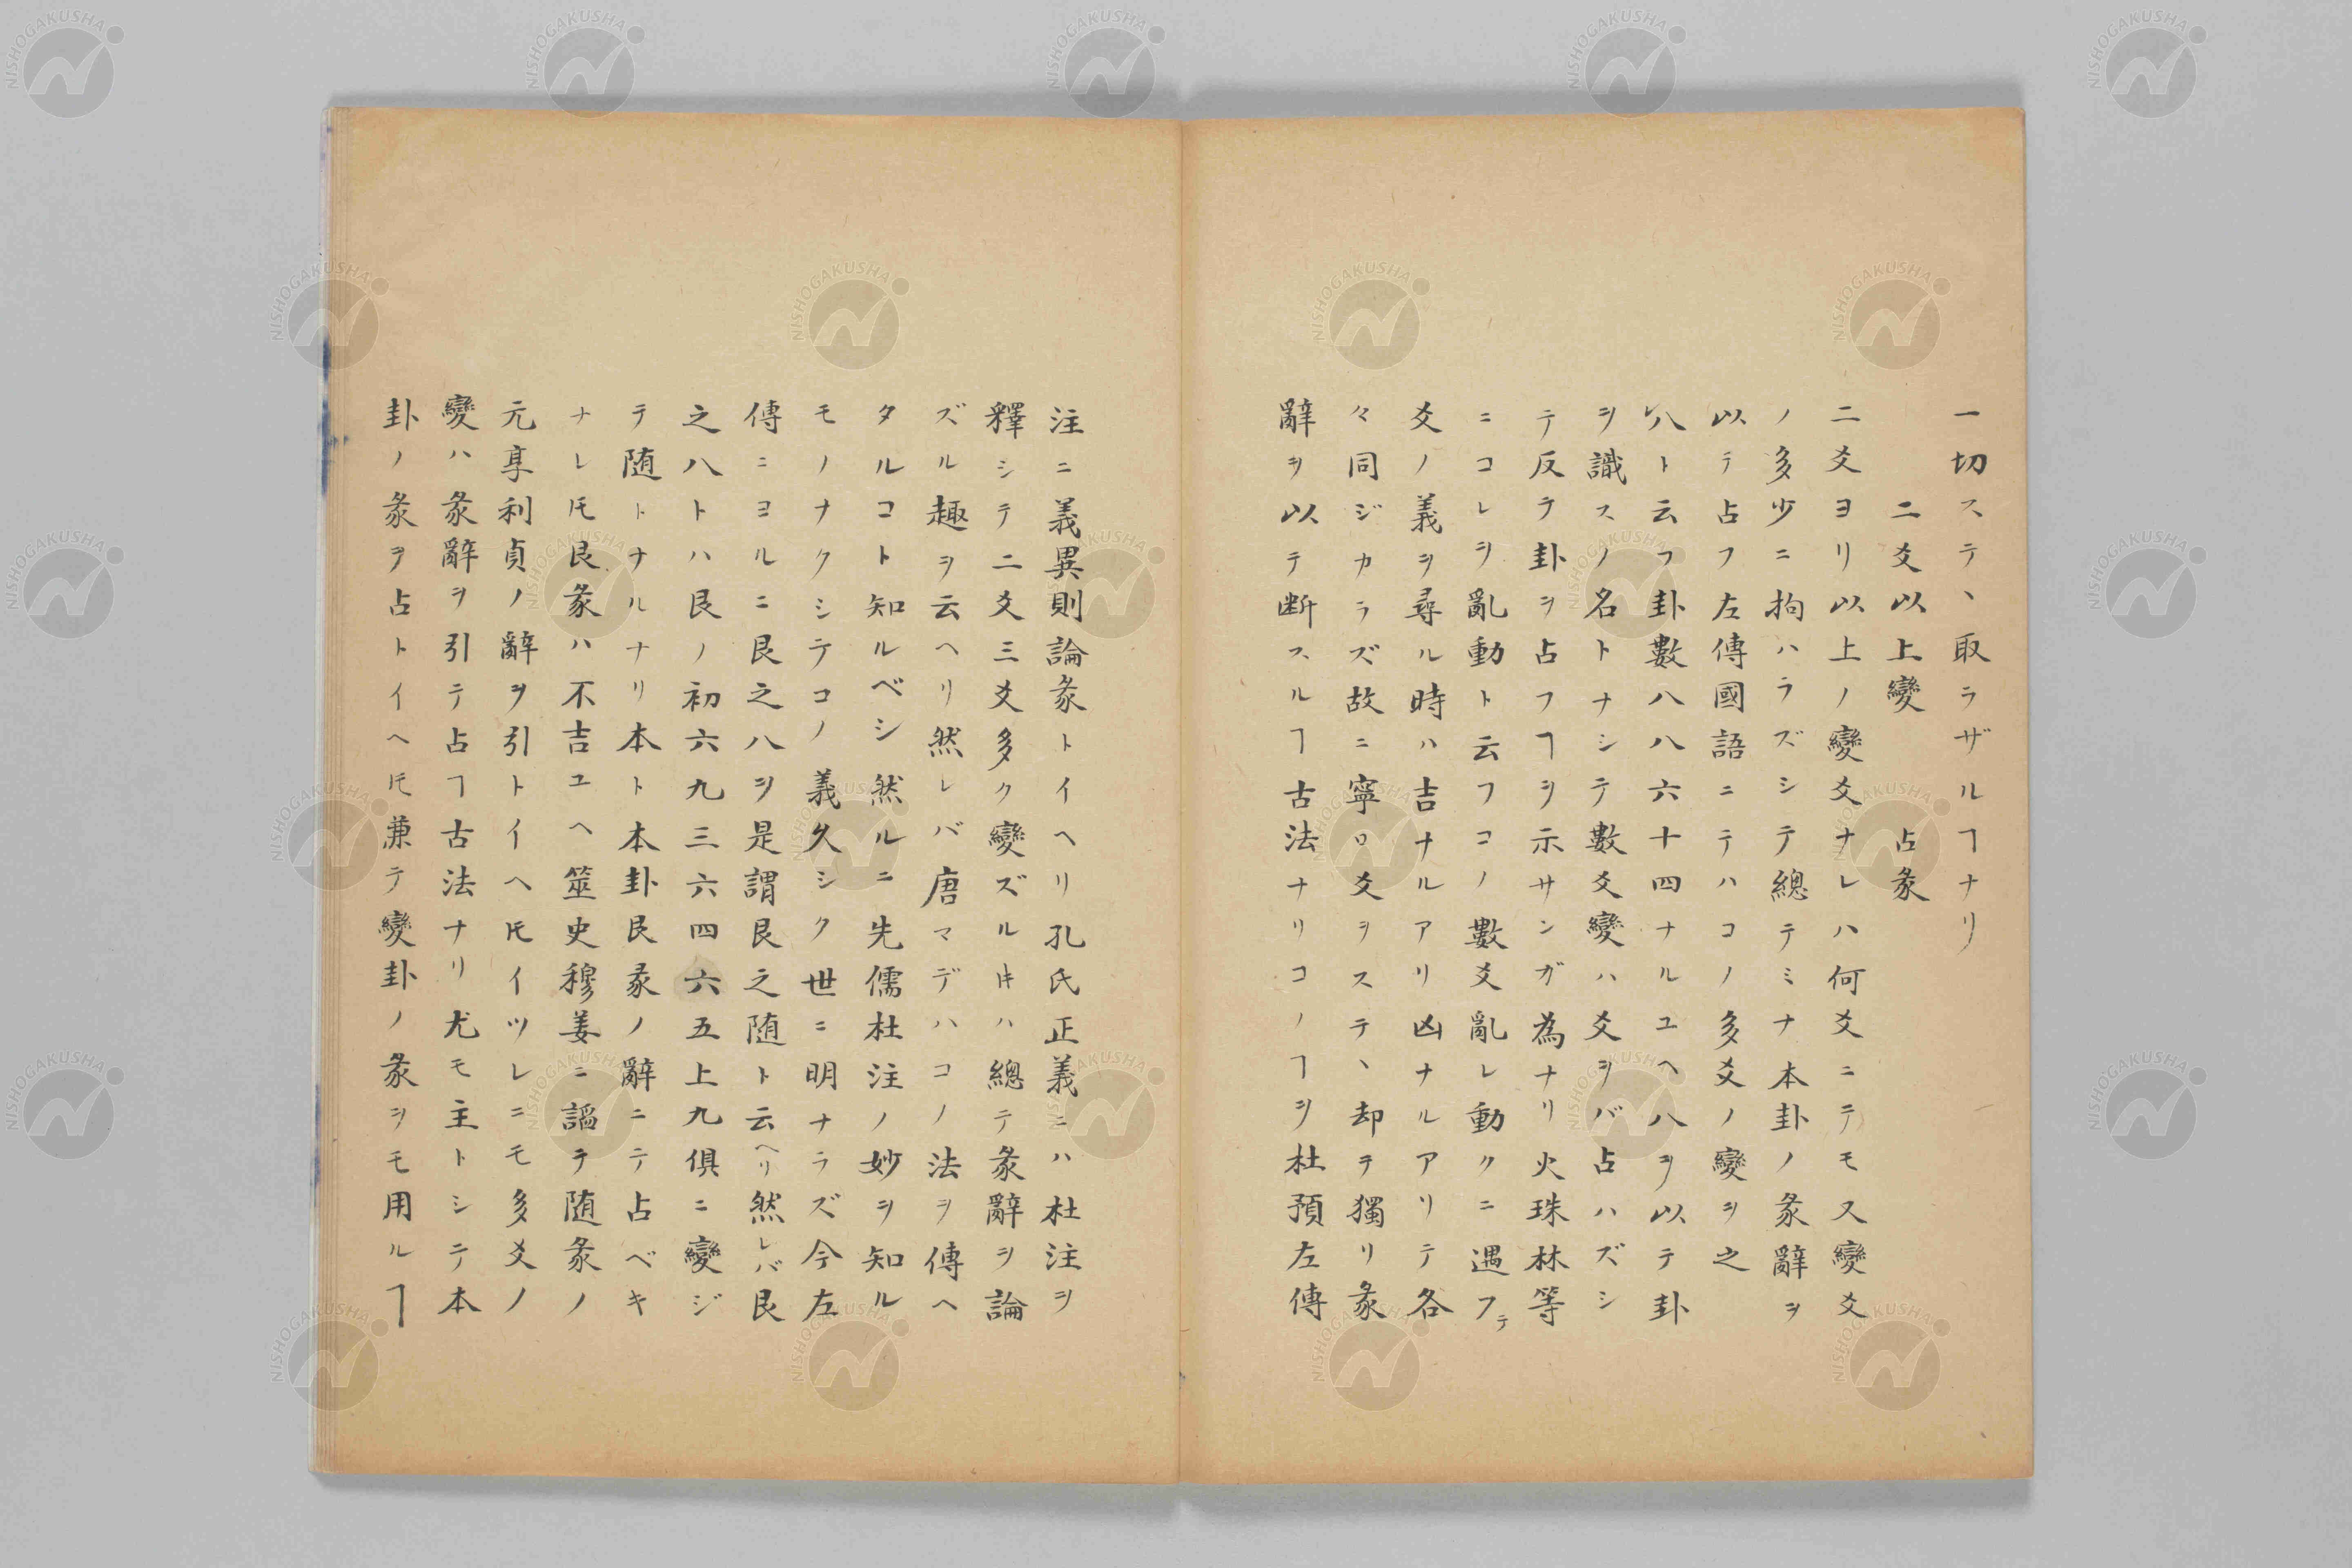 一切ステ、取ラザルヿナリ
二爻以上變　占彖
二爻ヨリ以上ノ變爻ナレハ何爻ニテモス變爻
ノ多少ニ拘ハラズシテ總テミナ本卦ノ彖辭ヲ
以テ占フ左傳國語ニテハコノ多爻ノ變ヲ之
レ八ト云フ卦數八八六十四ナルユヘ八ヲ以テ卦
ヲ識スノ名トナシテ數爻變ハ爻ヲバ占ハズシ
テ反テ卦ヲ占フヿヲ示サンガ為ナリ火珠林等
ニコレヲ亂動ト云フコノ數爻亂レ動クニ遇フテ
爻ノ義ヲ尋ル時ハ吉ナルアリ凶ナルアリテ各
々同ジカラズ故ニ寧ロ爻ヲステ、却テ獨リ彖
辭ヲ以テ断スルヿ古法ナリコノヿヲ杜預左傳
注ニ義異則論彖トイヘリ孔氏正義ニハ杜注ヲ
釋シテ二爻三爻多ク變ズルキハ總テ彖辭ヲ論
ズル趣ヲ云ヘリ然レバ唐マデハコノ法ヲ傳ヘ
タルコト知ルベシ然ルニ先儒杜注ノ妙ヲ知ル
モノナクシテコノ義久シク世ニ明ナラズ今左
傳ニヨルニ艮之八ヲ是謂艮之随ト云ヘリ然レバ艮
之八トハ艮ノ初六九三六四六五上九俱ニ變ジ
テ随トナルナリ本ト本卦艮彖ノ辭ニテ占ベキ
ナレ𪜈艮彖ハ不吉ユヘ筮史穆姜ニ謳テ随彖ノ
元享利貞ノ辭ヲ引トイヘ𪜈イツレニモ多爻ノ
變ハ彖辭ヲ引テ占ヿ古法ナリ尤モ主トシテ本
卦ノ彖ヲ占トイヘ𪜈兼テ變卦ノ彖ヲモ用ルヿ
NISHOGAKUSHA